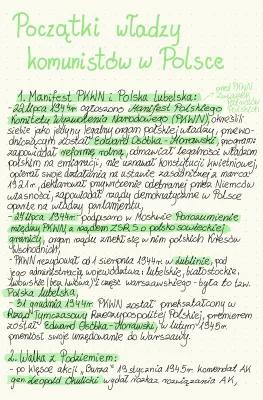 Początki władzy
komunistów w Polsce
1. Manifest PKWN i Polska Lubelska:
- 22 lipca 1944r. ogłoszono Manifest Polskiego
Komitetu Wyzwolenia Narodowego (PKWN), określili
siebie jako jedyny legalny organ polskiej władzy, przewo-
dniczącym został Edward Osóbka-Morawski, programi
zapowiadał reformę rolną, odmawiał legalności władzom
polskim na emigracji, nie uznawał konstytucji kwietniowej,
opierał swoje działania na ustawie zasadniczej z marca
1921r., deklarował przywrócenie odebranej przez Niemców
własności, zapowiadał rządy demokratyczne w Polsce
oparte na władzy parlamentu,
- 27 lipca 1944r. podpisano w Moskwie Porozumienie
między PKWN, a rządem ZSRS o polsko sowieckiej
granicy, organ rządu zrzekł się w nim polskich Kresów
Wschodnich,
- PKWN rezydował od 1 sierpnia 1944r. w Lublinie, pod
jego administracją województwa: lubelskie, białostockie,
lubelskie (bez Lwowa) i część warszawskiego - była to tzw.
Polska lubelska,
- 31 grudnia 1944r. PKWN został przekształcony w
Rząd Tymczasowy Rzeczypospolitej Polskiej, premierem
został Edward Osóbka-Morawski, w lutym 1945r.
przeniósł swoje urzędowanie do Warszawy.
2. Walka z Podziemiem:
- po klęsce akcji „Burza” 19 stycznia 1945r. komendat AK
gen. Leopold Okulicki wydał rozkaz rozwiązania AK,